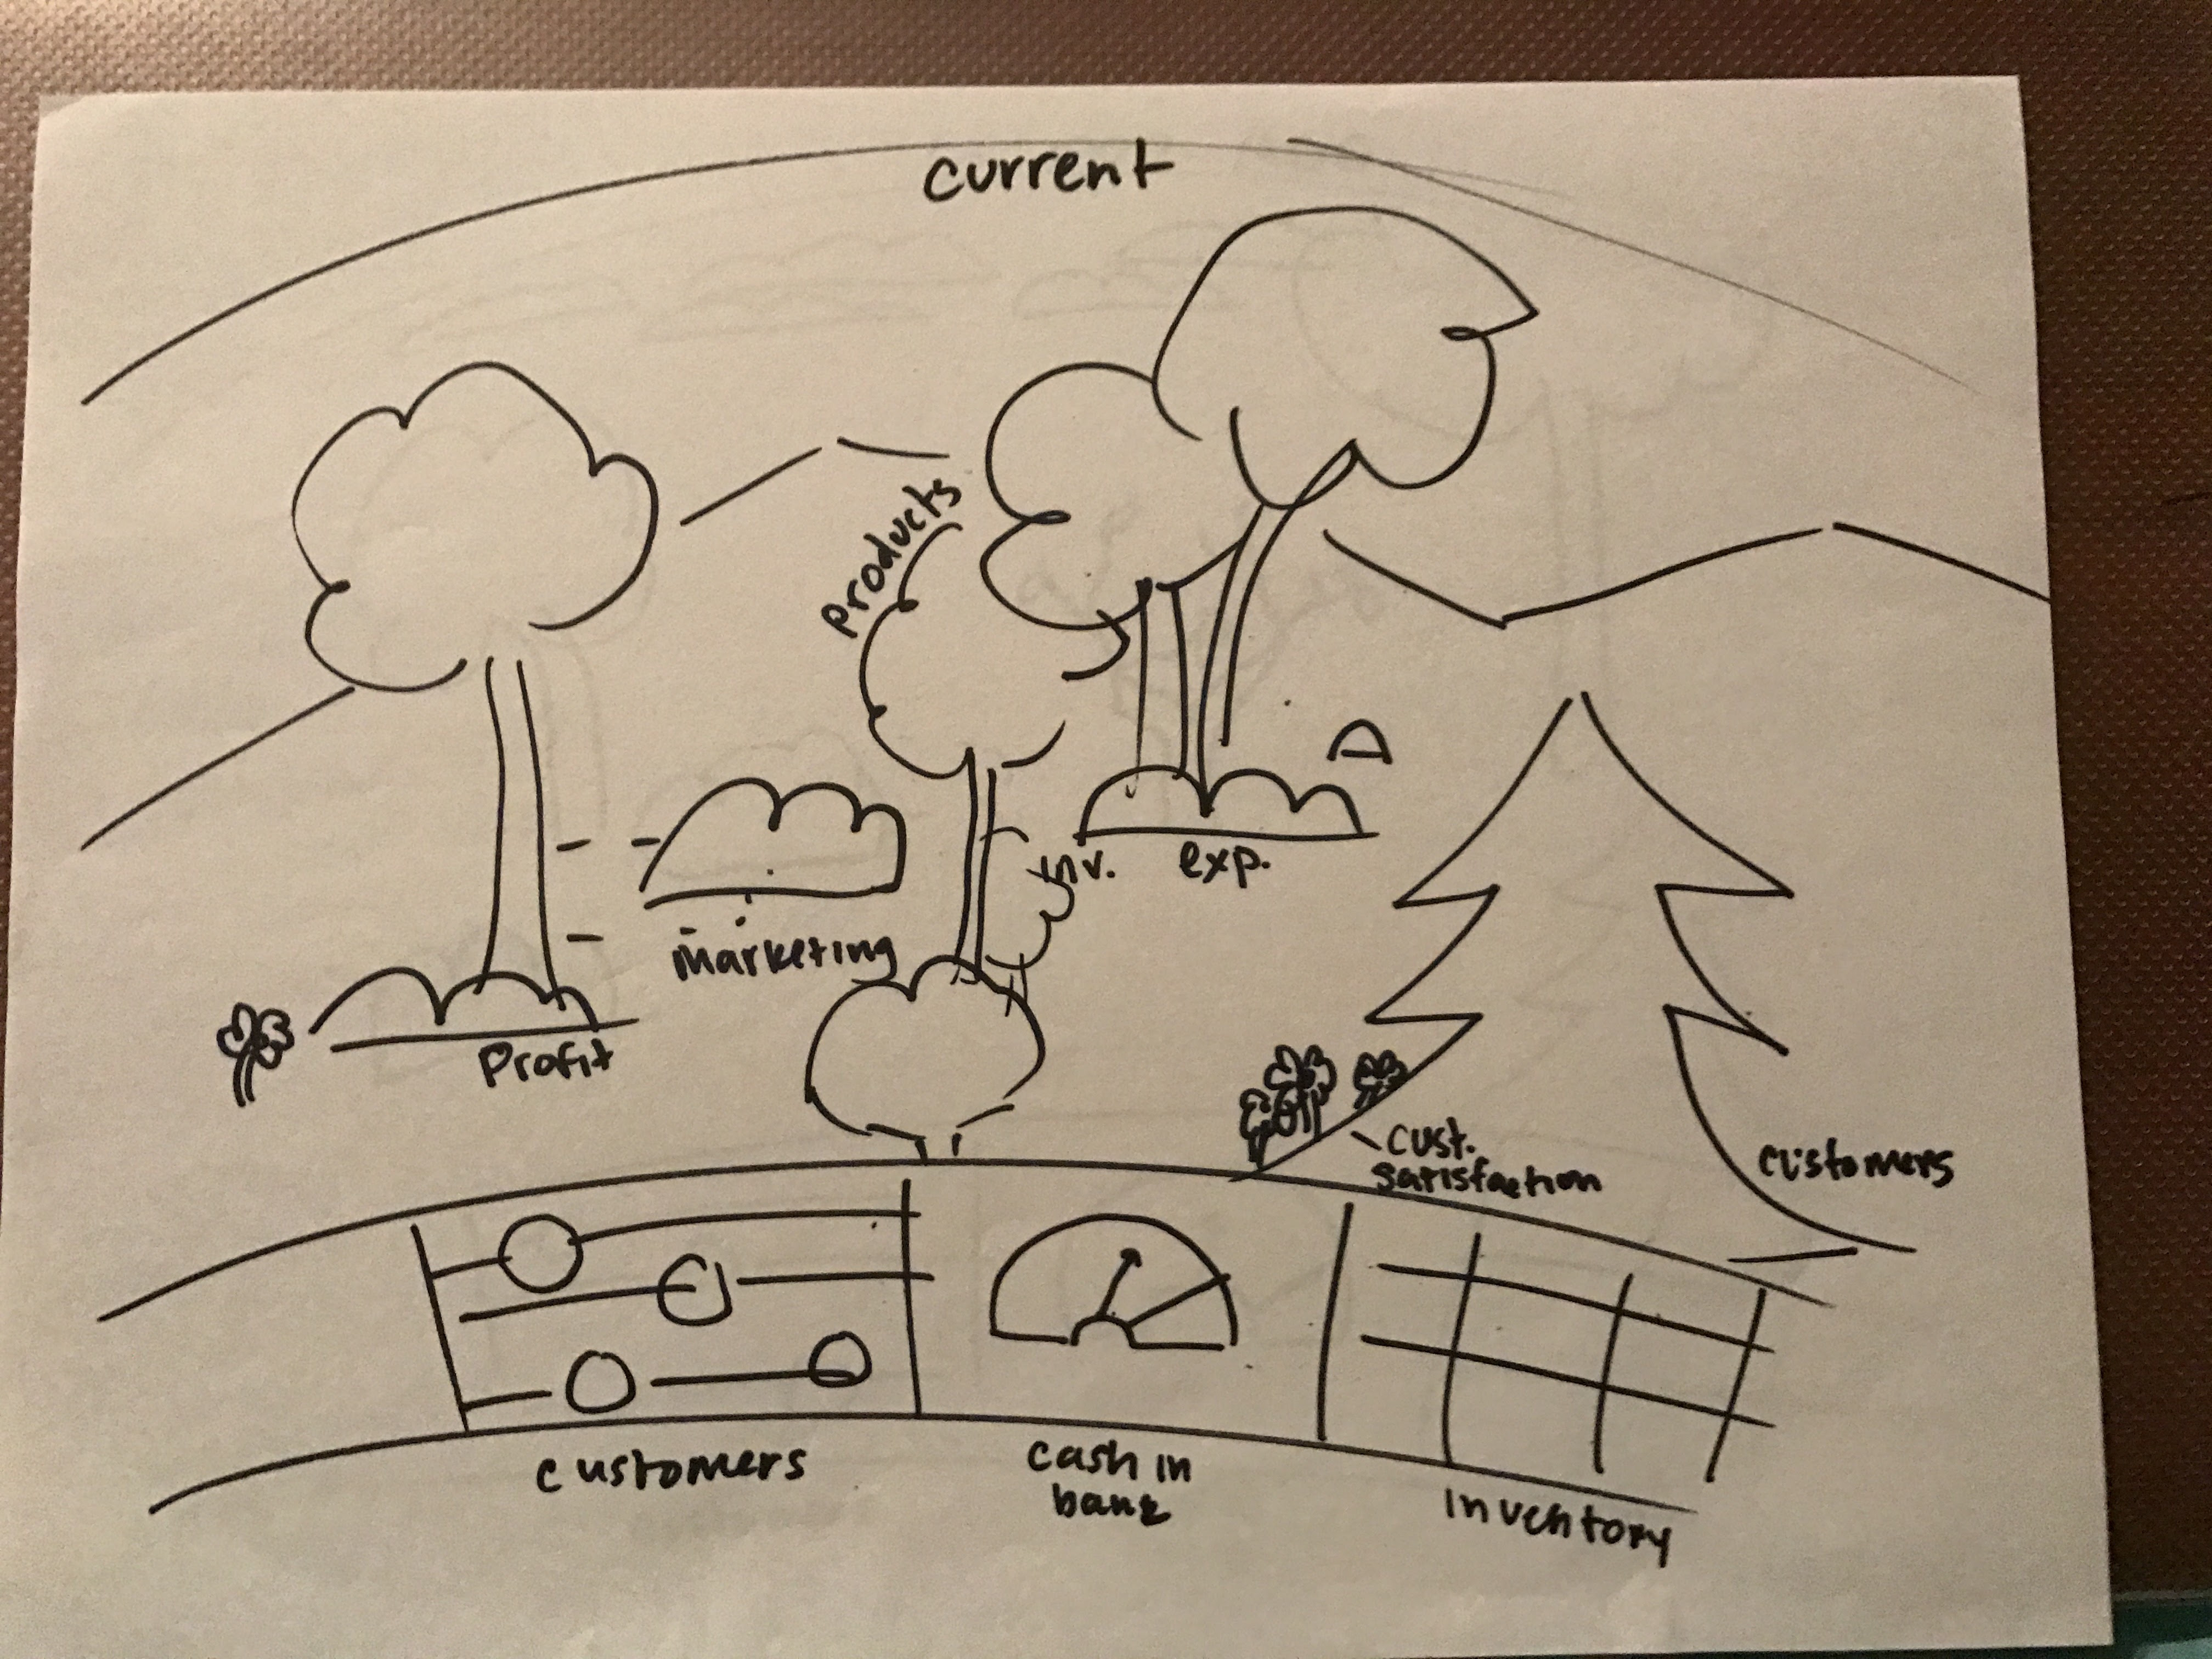 current
products
inv.
exp.
marketing
Profit
cust.
satisfaction
customers
customers
cash in
bank
inventory